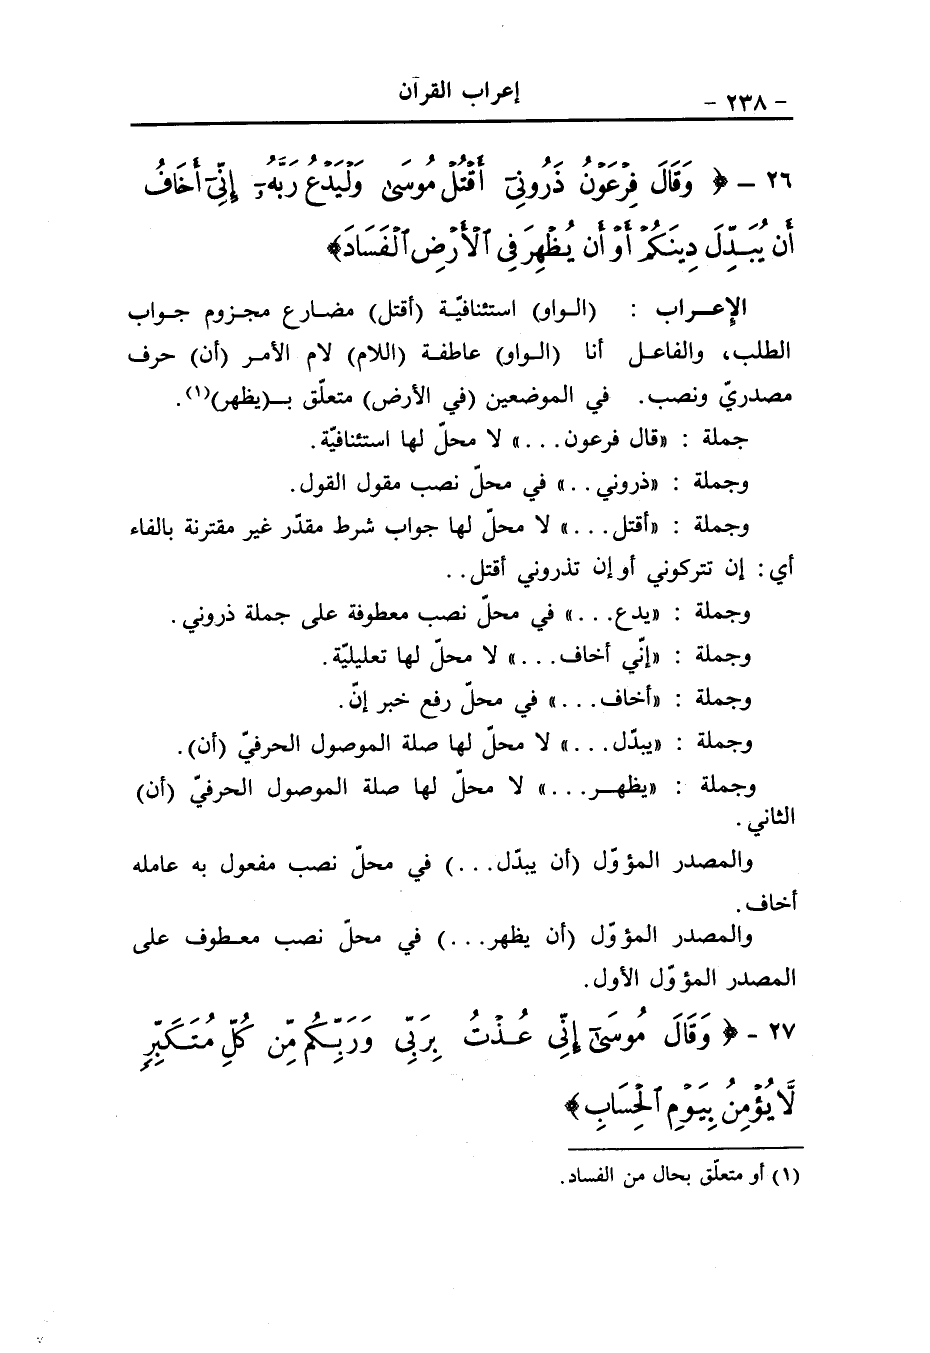 - ٢٣٨ - إعراب القرآن
٢٦ - ﴿ وَقَالَ فِرْعَوْنُ ذَرُونِىٓ أَقْتُلْ مُوسَىٰ وَلْيَدْعُ رَبَّهُۥٓ إِنِّىٓ أَخَافُ
أَن يُبَدِّلَ دِينَكُمْ أَوْ أَن يُظْهِرَ فِى ٱلْأَرْضِ ٱلْفَسَادَ ﴾
الإعــراب : (الـواو) استئنافيّـة (أقتل) مضـارع مجـزوم جـواب
الطلب، والفاعـل أنا (الـواو) عاطفـة (اللام) لام الأمـر (أن) حرف
مصدريّ ونصب. في الموضعين (في الأرض) متعلّق بـ(يظهر)(١).
جملة : «قال فرعون...» لا محلّ لها استئنافيّة.
وجملة : «ذروني..» في محلّ نصب مقول القول.
وجملة : «أقتل...» لا محلّ لها جواب شرط مقدّر غير مقترنة بالفاء
أي: إن تتركوني أو إن تذروني أقتل..
وجملة : «يدع...» في محلّ نصب معطوفة على جملة ذروني.
وجملة : «إنّي أخاف...» لا محلّ لها تعليليّة.
وجملة : «أخاف...» في محلّ رفع خبر إنّ.
وجملة : «يبدّل...» لا محلّ لها صلة الموصول الحرفيّ (أن).
وجملة : «يظهــر...» لا محلّ لها صلة الموصول الحرفيّ (أن)
الثاني.
والمصدر المؤوّل (أن يبدّل...) في محلّ نصب مفعول به عامله
أخاف.
والمصدر المؤوّل (أن يظهر...) في محلّ نصب معـطوف على
المصدر المؤوّل الأول.
٢٧ - ﴿ وَقَالَ مُوسَىٰٓ إِنِّى عُذْتُ بِرَبِّى وَرَبِّكُم مِّن كُلِّ مُتَكَبِّرٍ
لَّا يُؤْمِنُ بِيَوْمِ ٱلْحِسَابِ ﴾
(١) أو متعلّق بحال من الفساد.